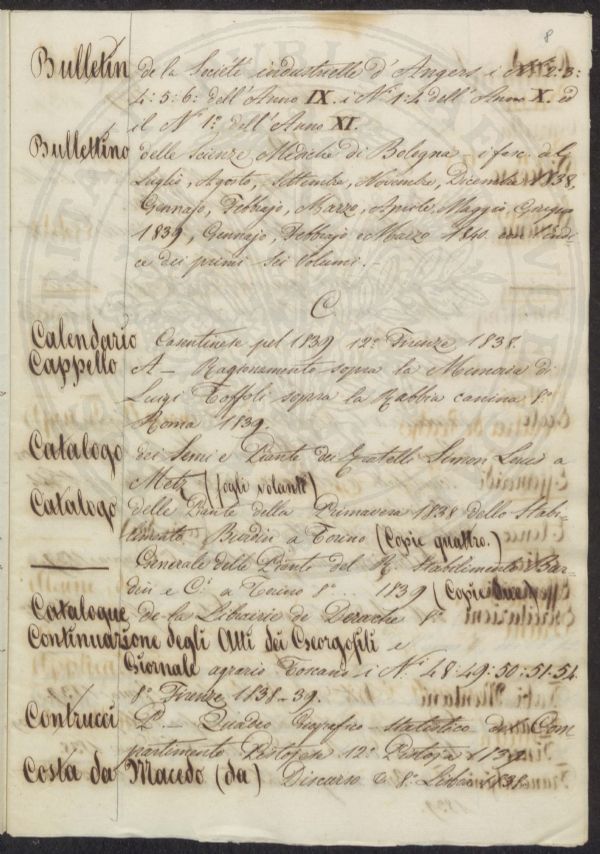 8
Bulletin de la Société industrielle d'Angers i N.i 2:3:
4:5:6: dell'Anno IX. i N.i 1:4 dell'Anno X. ed
il N.o 1.o dell'Anno XI.
Bullettino delle Scienze Mediche di Bologna i fasc. del
Luglio, Agosto, Settembre, Novembre, Dicembre 1838.
Gennajo, Febbrajo, Marzo, Aprile, Maggio, Giugno
1839, Gennajo, Febbrajo e Marzo 1840. con l'Indi-
ce dei primi sei Volumi.-
C
Calendario pel 1839 12.o Firenze 1838.
Cappello A- Ragionamento sopra la Memoria di
Luigi Toffoli sopra la Rabbia canina 8.o
Roma 1839.
Catalogo dei Semi e Piante dei Fratelli Simon Louis a
Metz (fogli volanti)
Catalogo delle Piante della Primavera 1838 dello Stabi-
limento Burdin a Torino (Copie quattro.)
— Generale delle Piante del R.o Stabilimento Bur-
din e C.i a Torino 8.o .. 1839 (Copie due)
Catalogue de la Librairie de Derache 8.o
Continuazione degli Atti dei Georgofili e
Giornale agrario Toscano i N.i 48:49:50:51:54.
8.o Firenze 1838-39.
Contrucci P- Quadro Geografico-statistico del Com-
partimento Pistojese 12.o Pistoja 1839.
Costa da Macedo (da) Discurso 8.o Lisboa 1838.